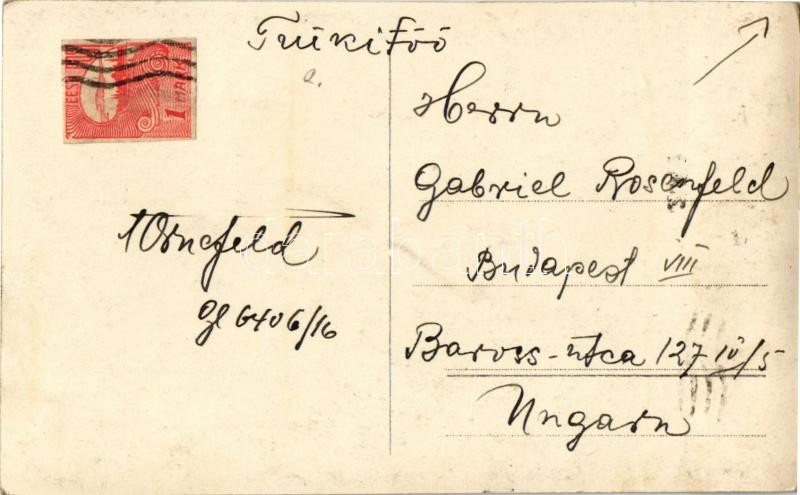 Trükitöö
EESTI
1 MARK
a.
Herrn
Gabriel Rosenfeld
Budapest VIII
Baross-utca 127 IV/5
Ungarn
gl 6406/16
darabanth